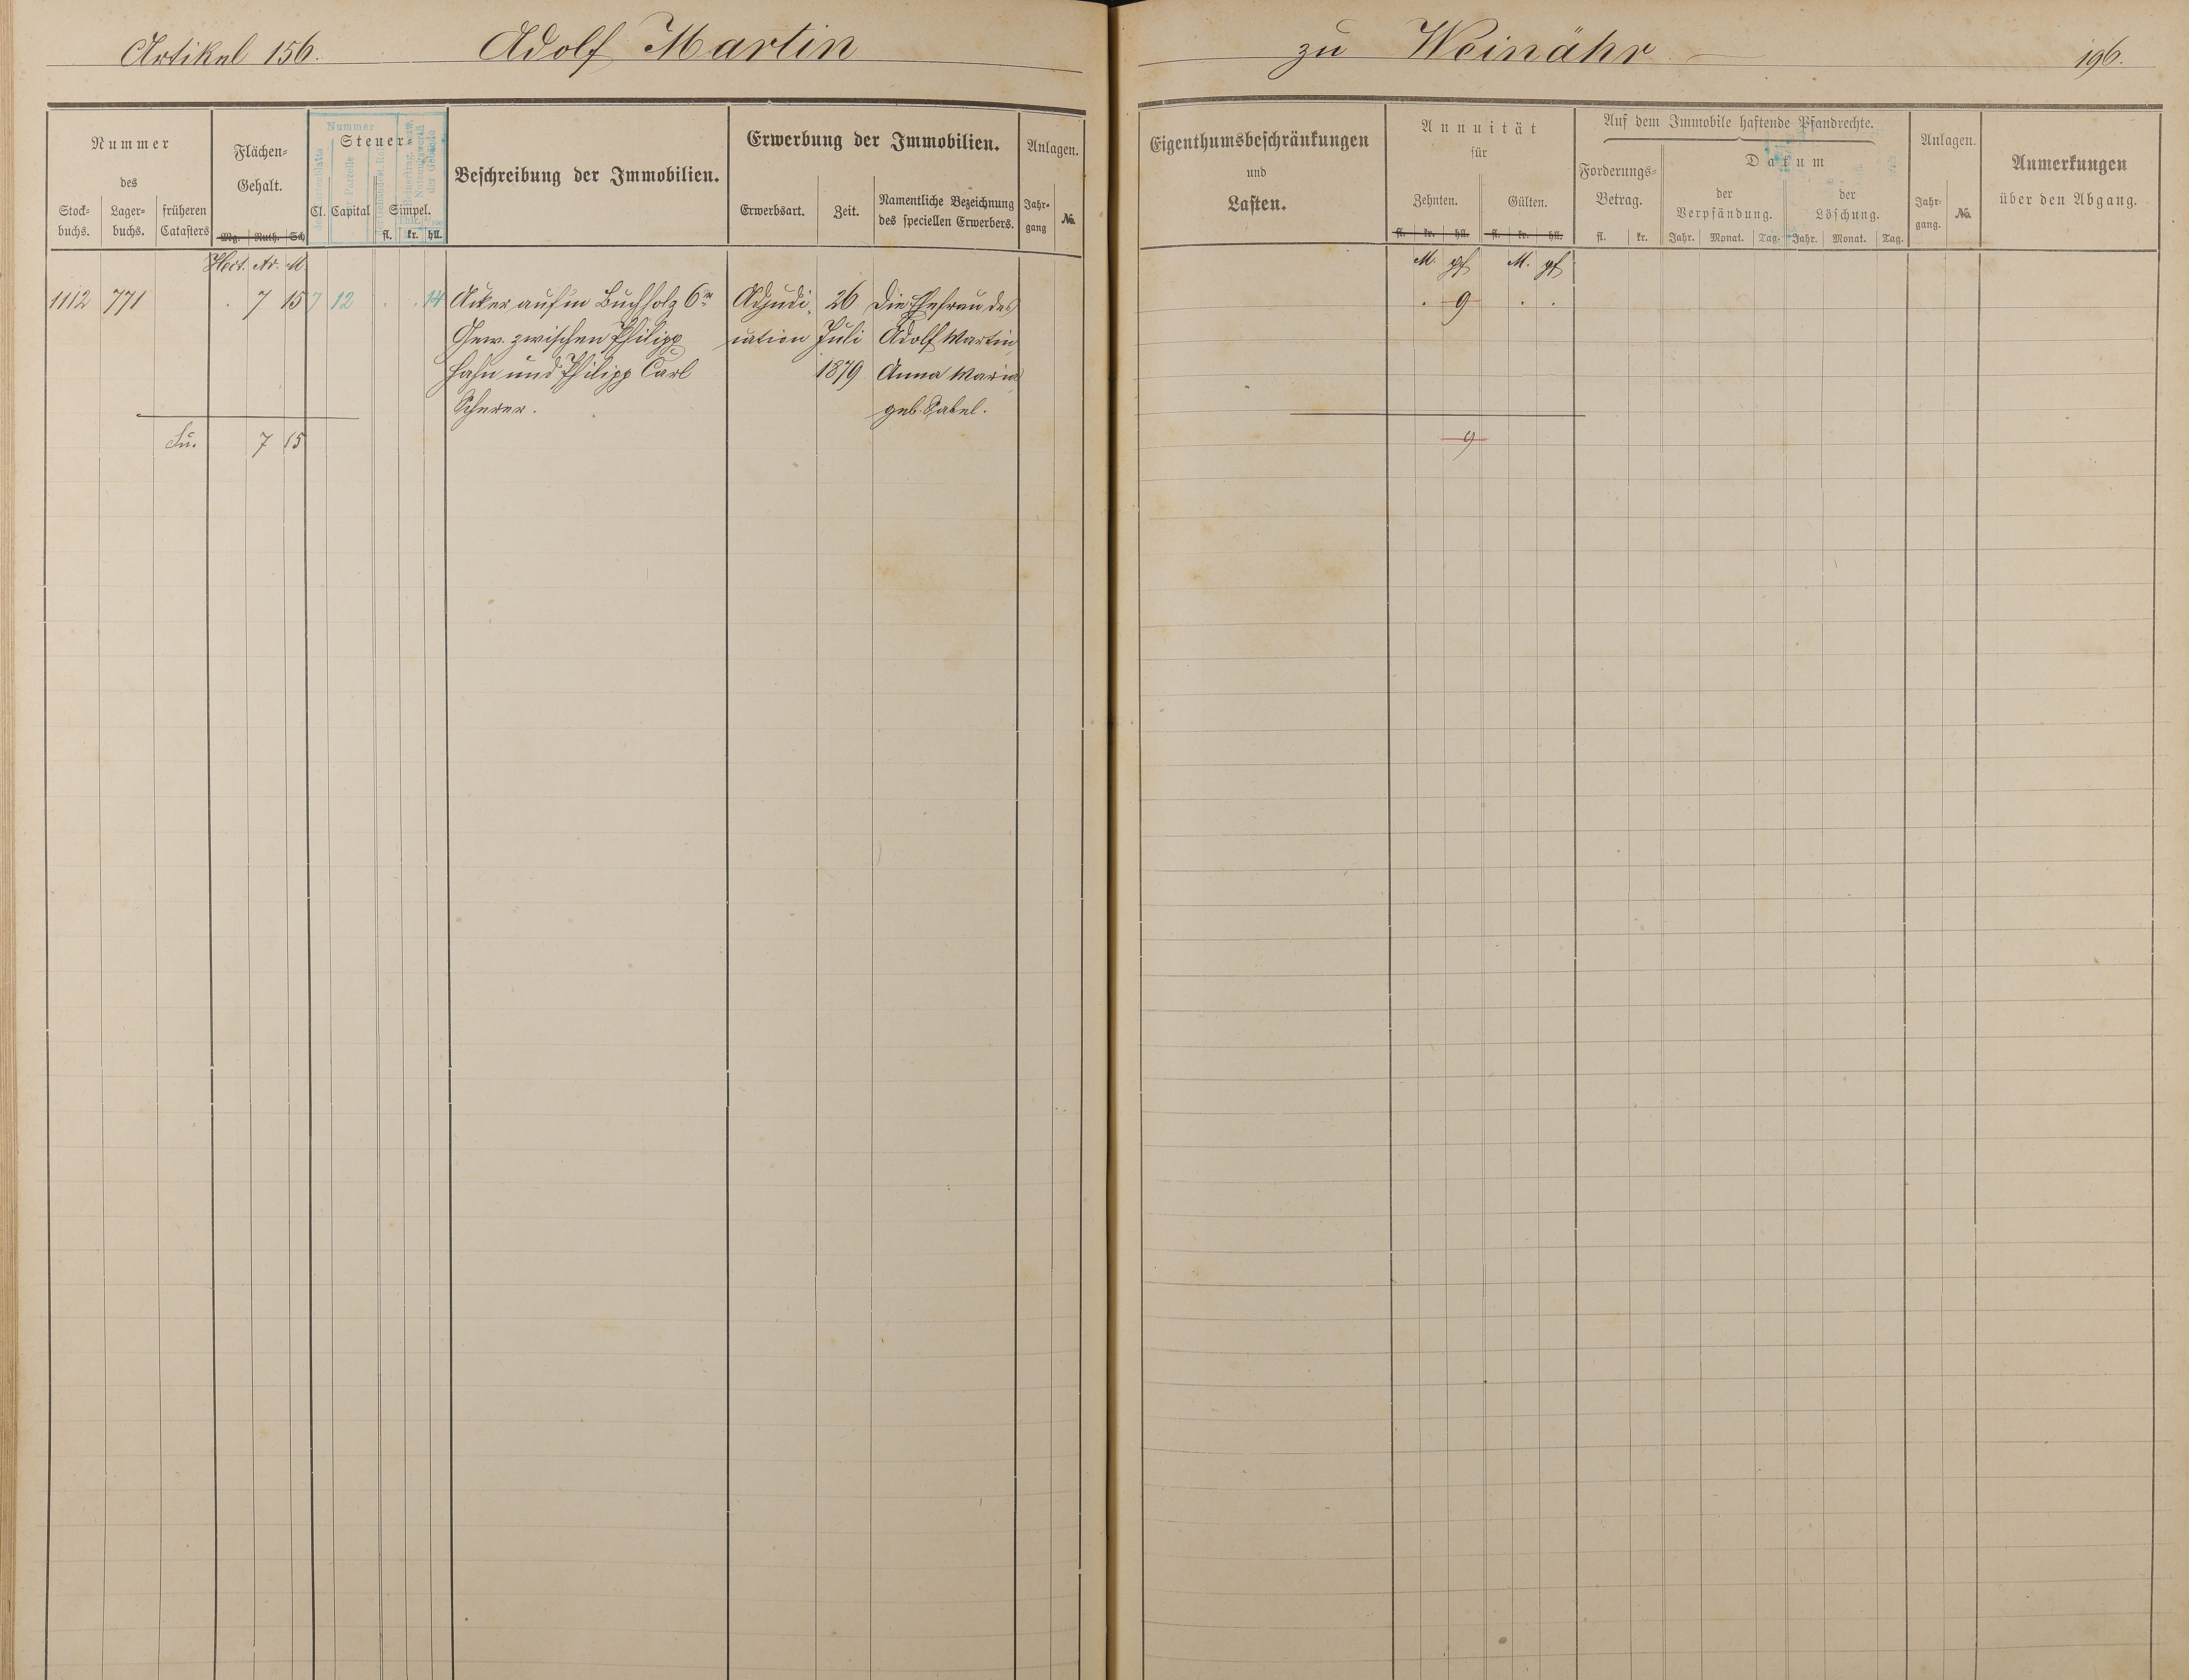 Artikel 156. Adolf Martin zu Weinähr 196.
Nummer
des
Stock-
buchs.
Lager-
buchs.
früheren
Catasters
Flächen-
Gehalt.
Mg. Ruth. Sch
Hect. Ar. M.
Nummer
Steuer-
Parzelle
der Gebäude
Cl. Capital Simpel.
fl. kr. hll.
Beschreibung der Immobilien.
Erwerbung der Immobilien.
Erwerbsart. Zeit.
Namentliche Bezeichnung
des speciellen Erwerbers.
Anlagen.
Jahr-
gang
№
1112 771 . 7 15 7 12 . . 14
Acker auf'm Buchholz 6r
Gew. zwischen Philipp
Hahn und Philipp Carl
Scherer.
Adjudi-
cation
26
Juli
1879
Die Ehefrau des
Adolf Martin
Anna Maria
geb. Sabel.
Su. 7 15
Eigenthumsbeschränkungen
und
Lasten.
Annuität
für
Zehnten. Gülten.
fl. kr. hll. fl. kr. hll.
M. pf M. pf
. 9 . .
9
Auf dem Immobile haftende Pfandrechte.
Forderungs-
Betrag.
fl. kr.
Datum
der
Verpfändung.
Jahr. Monat. Tag.
der
Löschung.
Jahr. Monat. Tag.
Anlagen.
Jahr-
gang.
№
Anmerkungen
über den Abgang.